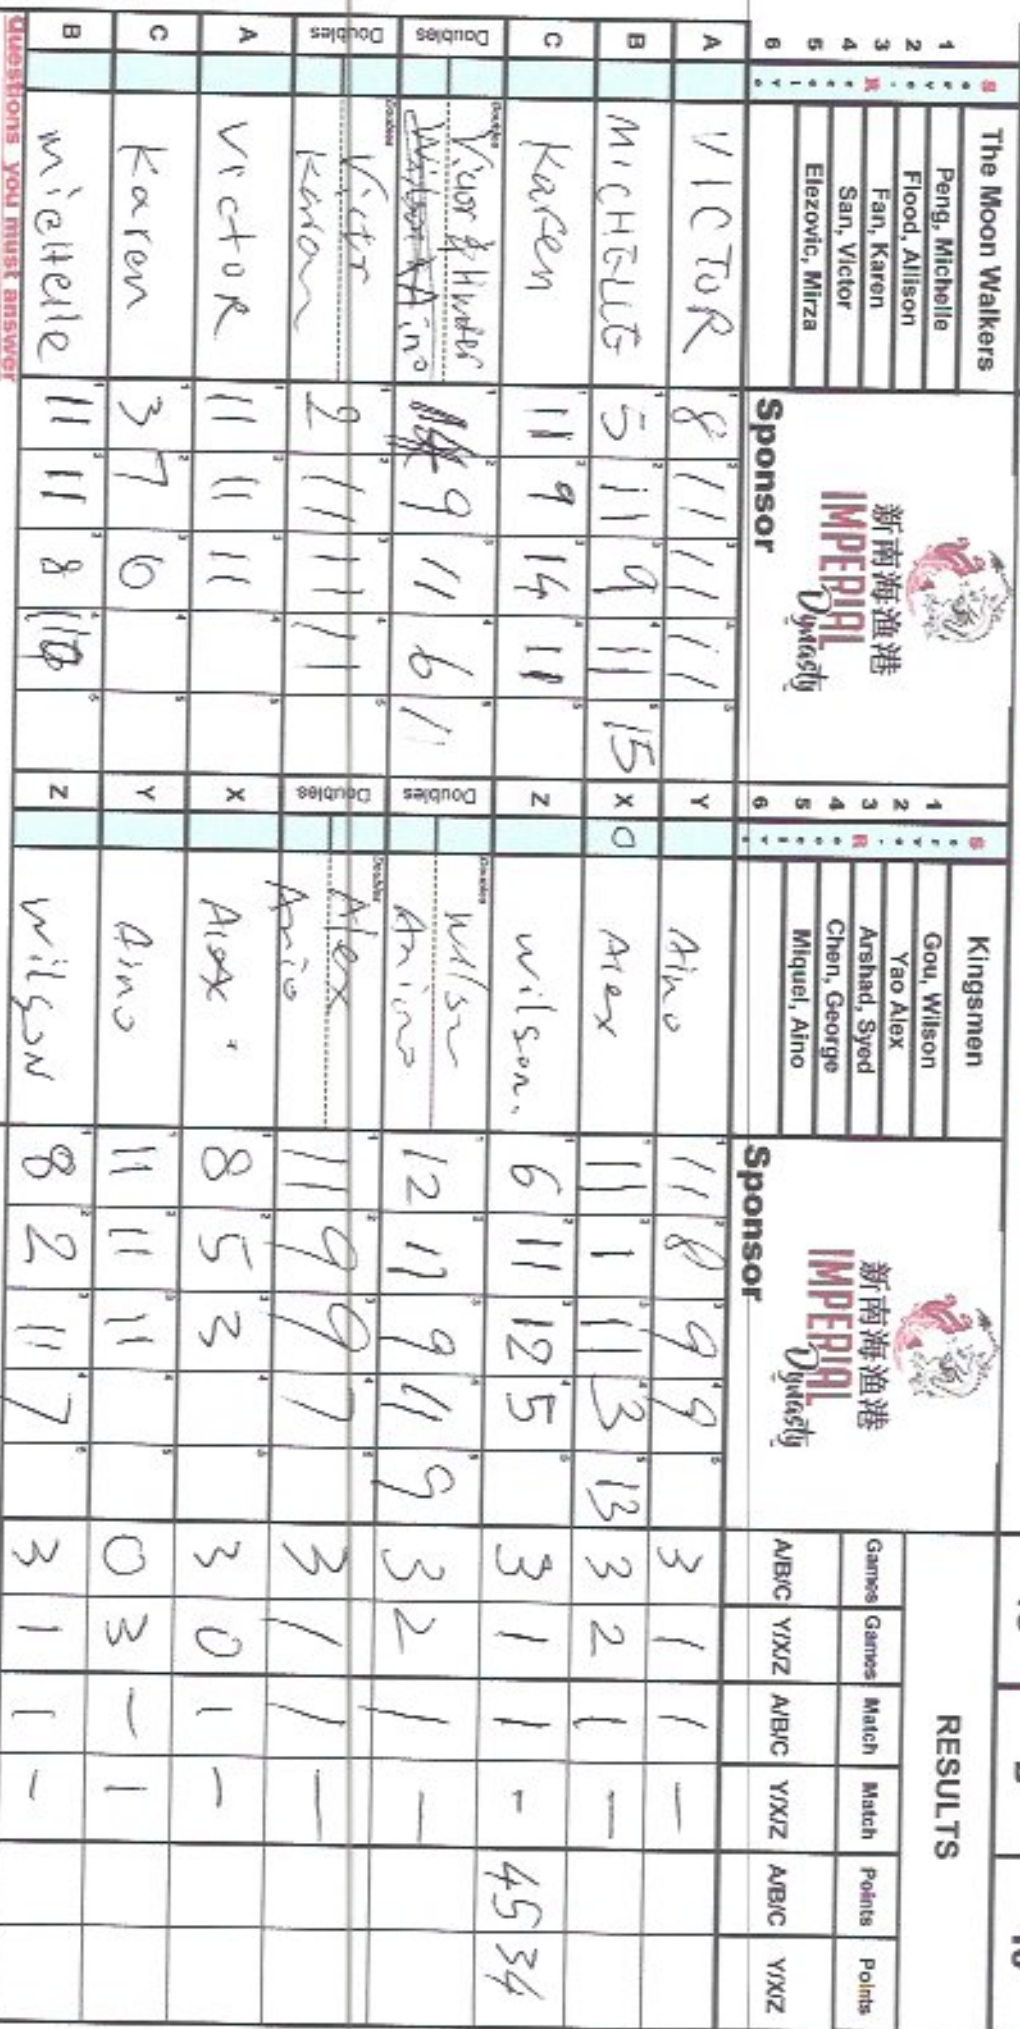 The Moon Walkers
1 Peng, Michelle
2 Flood, Allison
3 Fan, Karen
4 San, Victor
5 Elezovic, Mirza
6
新南海渔港
IMPERIAL
Dynasty
Sponsor
Kingsmen
1 Gou, Wilson
2 Yao Alex
3 Arshad, Syed
4 Chen, George
5 Miquel, Aino
6
新南海渔港
IMPERIAL
Dynasty
Sponsor
RESULTS
Games Games Match Match Points Points
A/B/C Y/X/Z A/B/C Y/X/Z A/B/C Y/X/Z
A VICTOR 8 11 11 11 Y Aino 11 8 9 9 3 1 1 —
B MICHELLE 5 11 9 11 15 X 0 Alex 11 1 11 3 13 3 2 1 —
C Karen 11 9 14 11 Z Wilson. 6 11 12 5 3 1 1 - 45 34
Doubles Victor & 9 11 6 11 Doubles Wilson Anino 12 11 9 11 9 3 2 1 —
Doubles Victor Karen 2 11 11 11 Doubles Alex Anio 11 9 9 7 3 1 1 —
A VICTOR 11 11 11 X Alex 8 5 3 3 0 1 —
C Karen 3 7 6 Y Aino 11 11 11 0 3 — 1
B michelle 11 11 8 11 Z WilSON 8 2 11 7 3 1 1 -
Questions you must answer